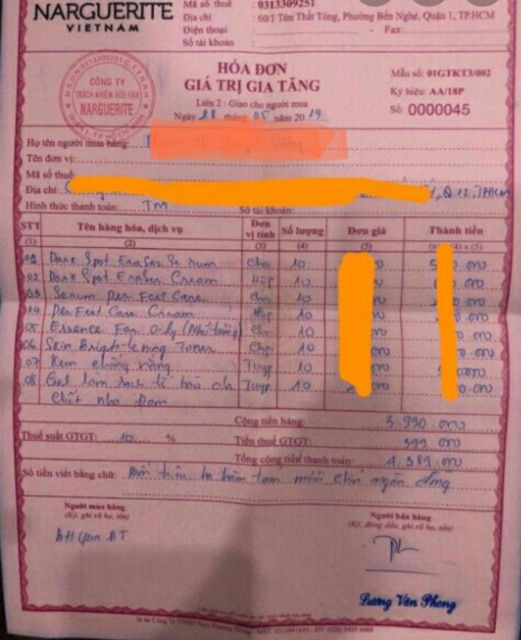 NARGUERITE
VIETNAM
Mã số thuế : 0313309251
Địa chỉ : 60/1 Tôn Thất Tùng, Phường Bến Nghé, Quận 1, TP.HCM
Điện thoại : - Fax:
Số tài khoản :
CÔNG TY
TRÁCH NHIỆM HỮU HẠN
NARGUERITE
HÓA ĐƠN
GIÁ TRỊ GIA TĂNG
Liên 2 : Giao cho người mua
Ngày 28 tháng 05 năm 2019
Mẫu số: 01GTKT3/002
Ký hiệu: AA/18P
Số: 0000045
Họ tên người mua hàng:
Tên đơn vị:
Mã số thuế
Địa chỉ: Q 12, TPHCM
Hình thức thanh toán: TM Số tài khoản:
STT Tên hàng hóa, dịch vụ Đơn vị tính Số lượng Đơn giá Thành tiền
(1) (2) (3) (4) (5) (4) x (5)
01 Dark Spot Eraser Serum Chai 10 000
02 Dark Spot Eraser Cream Hộp 10 000
03 Serum Per Feet Care Chai 10 000
04 Per Feet Care Cream Hộp 10 000
05 Essence For Oily Chai 10 000
06 Skin Brightening Toner Chai 10 000
07 Kem chống nắng Tuyp 10 000
08 Gel Tuyp 10 000
Cộng tiền hàng: 3.990 000
Thuế suất GTGT: 10 % Tiền thuế GTGT: 399 000
Tổng cộng tiền thanh toán: 4.389 000
Số tiền viết bằng chữ: Bốn triệu ba trăm tám mươi chín ngàn đồng
Người mua hàng
(Ký, ghi rõ họ, tên)
Người bán hàng
(Ký, đóng dấu, ghi rõ họ, tên)
BH Qua ĐT
Lương Văn Phong